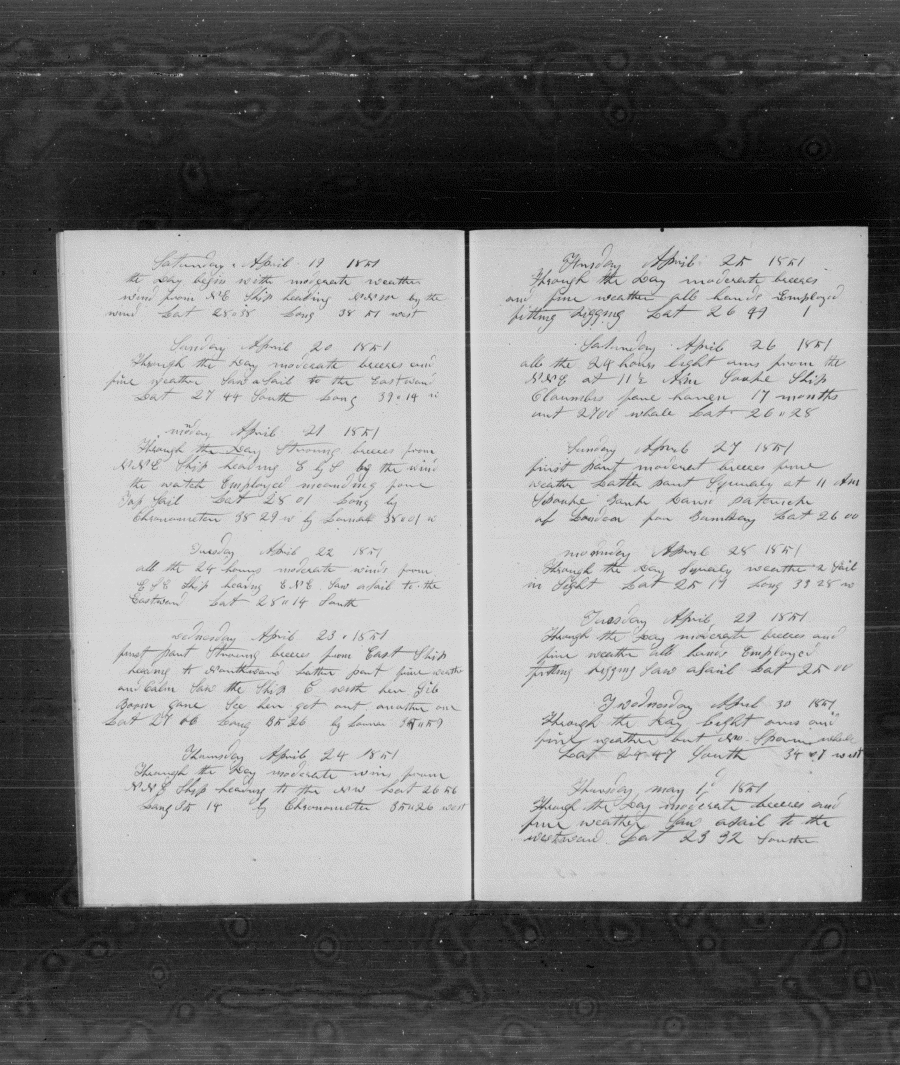 Saturday April 19 1851
the Day begin with moderate weather
wind from NE Ship heading NNW by the
wind Lat 28 038 Long 38 51 west
Sunday April 20 1851
Through the Day moderate breezes and
fine weather Saw a Sail to the Eastward
Lat 27 44 South Long 39 014 w
monday April 21 1851
Through the Day Strong breezes from
NNE Ship heading E by S by the wind
the watch Employed mending fore
Top Sail Lat 28 01 Long by
Chronometer 38 29 w by Lunar 38 01 w
Tuesday April 22 1851
all the 24 hours moderate winds from
Ship heaing ENE Saw a sail to the
Eastward Lat 28 014 South
wednesday April 23 1851
first part Strong breezes from East Ship
heaing to Northward Latter part fine weather
and Calm Saw the Ship E with her Jib
Boom gone See her get out another one
Lat 27 06 Long 35 26 by Lunar
Thursday April 24 1851
Through the Day moderate wins from
NNE Ship heading to the NW Lat 26 56
Long 35 14 by Chronometer 35 026 west
Friday April 25 1851
Through the Day moderate breezes
and fine weather all hands Employed
fitting rigging Lat 26 49
Saturday April 26 1851
all the 24 hours light airs from the
NNE at 11 1/2 Am Spoke Ship
Clumbus fare haven 17 months
out 2700 whale Lat 26 028
Sunday April 27 1851
first part moderet breezes fine
weather Latter part Squaly at 11 Am
Spoke
of London for Lat 26 00
monday April 28 1851
Through the Day Squaly weather 2 Sail
in Sight Lat 25 19 Long 33 28 w
Tuesday April 29 1851
Through the Day moderate breezes and
fine weather all hands Employed
fitting rigging Saw a Sail Lat 25 00
wednesday April 30 1851
Through the Day Light airs and
fine weather but no Sperm whale
Lat 24 47 South 34 07 west
Thursday may 1 1851
Through the Day moderate breezes and
fine weather Saw a sail to the
westward Lat 23 32 South